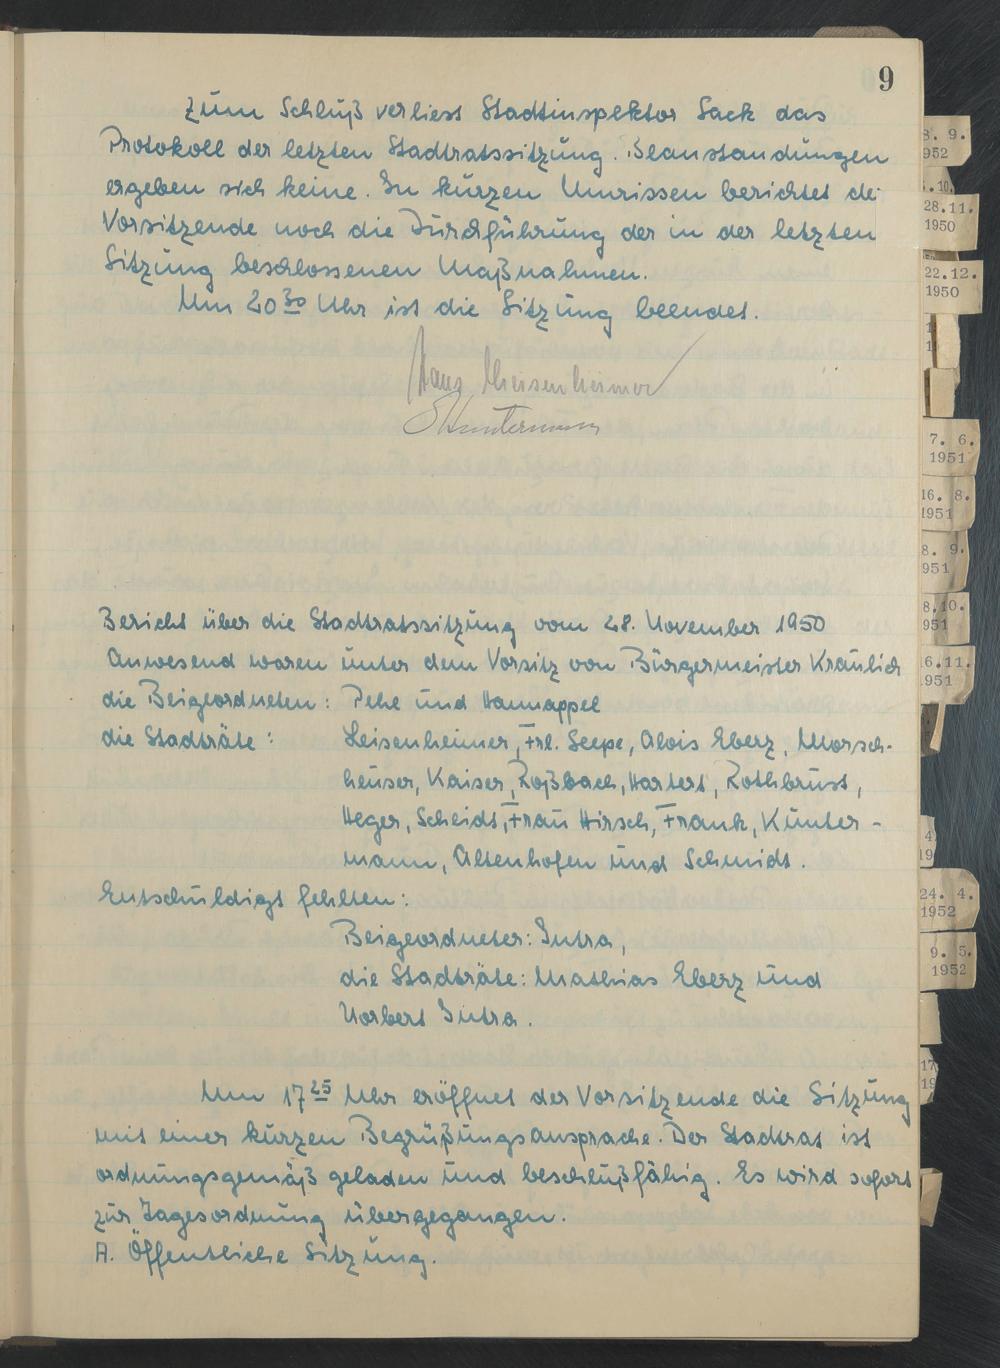 9
Zum Schluß verliest Stadtinspektor Sack das
Protokoll der letzten Stadtratssitzung. Beanstandungen
ergeben sich keine. In kurzen Umrissen berichtet de
Vorsitzende noch die Durchführung der in der letzten
Sitzung beschlossenen Maßnahmen.
Um 20 30 Uhr ist die Sitzung beendet.
Bericht über die Stadtratssitzung vom 28. November 1950
Anwesend waren unter dem Vorsitz von Bürgermeister Kräulich
die Beigeordneten: Pehe und Hannappel
die Stadträte: Leisenheimer, Frl. Seepe, Alois Eberz, Morsch-
heuser, Kaiser, Roßbach, Hartert, Rothbrust,
Heger, Scheidt, Frau Hirsch, Frank, Kunter-
mann, Altenhofen und Schmidt.
Entschuldigt fehlten:
Beigeordneter: Intra,
die Stadträte: Mathias Eberz und
Norbert Intra.
Um 17 25 Uhr eröffnet der Vorsitzende die Sitzung
mit einer kurzen Begrüßungsansprache. Der Stadtrat ist
ordnungsgemäß geladen und beschlußfähig. Es wird sofort
zur Tagesordnung übergegangen.
A. Öffentliche Sitzung.
8. 9.
952
.10.
28.11.
1950
22.12.
1950
7. 6.
1951
16. 8.
1951
8. 9.
951
8.10.
951
6.11.
1951
4
19
24. 4.
1952
9. 5.
1952
17
19